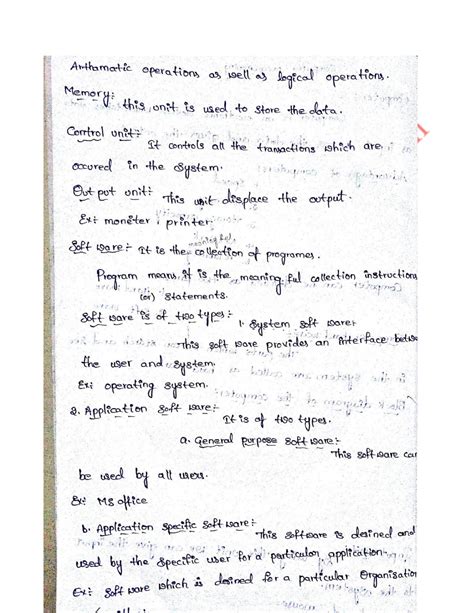 Arthamatic operations as well as logical operations.
Memory:
this unit is used to store the data.
Control unit:-
It controls all the transactions which are
occured in the system.
Out put unit:- This unit displace the output.
Ex:- moneter, printer.
meaning ful
Soft ware:- It is the collection of programes.
Program means, it is the meaning ful collection instructions
(or) statements.
Soft ware is of two types:-
1. System soft ware:
This soft ware provides an interface betwe
the user and system.
Ex: operating system.
2. Application soft ware:-
It is of two types.
a. General purpose soft ware:-
This soft ware can
be used by all users.
Ex: MS office
b. Application specific soft ware:-
This software is desined and
used by the specific user for a particular application.
Ex:- soft ware which is desined for a particular Organisation